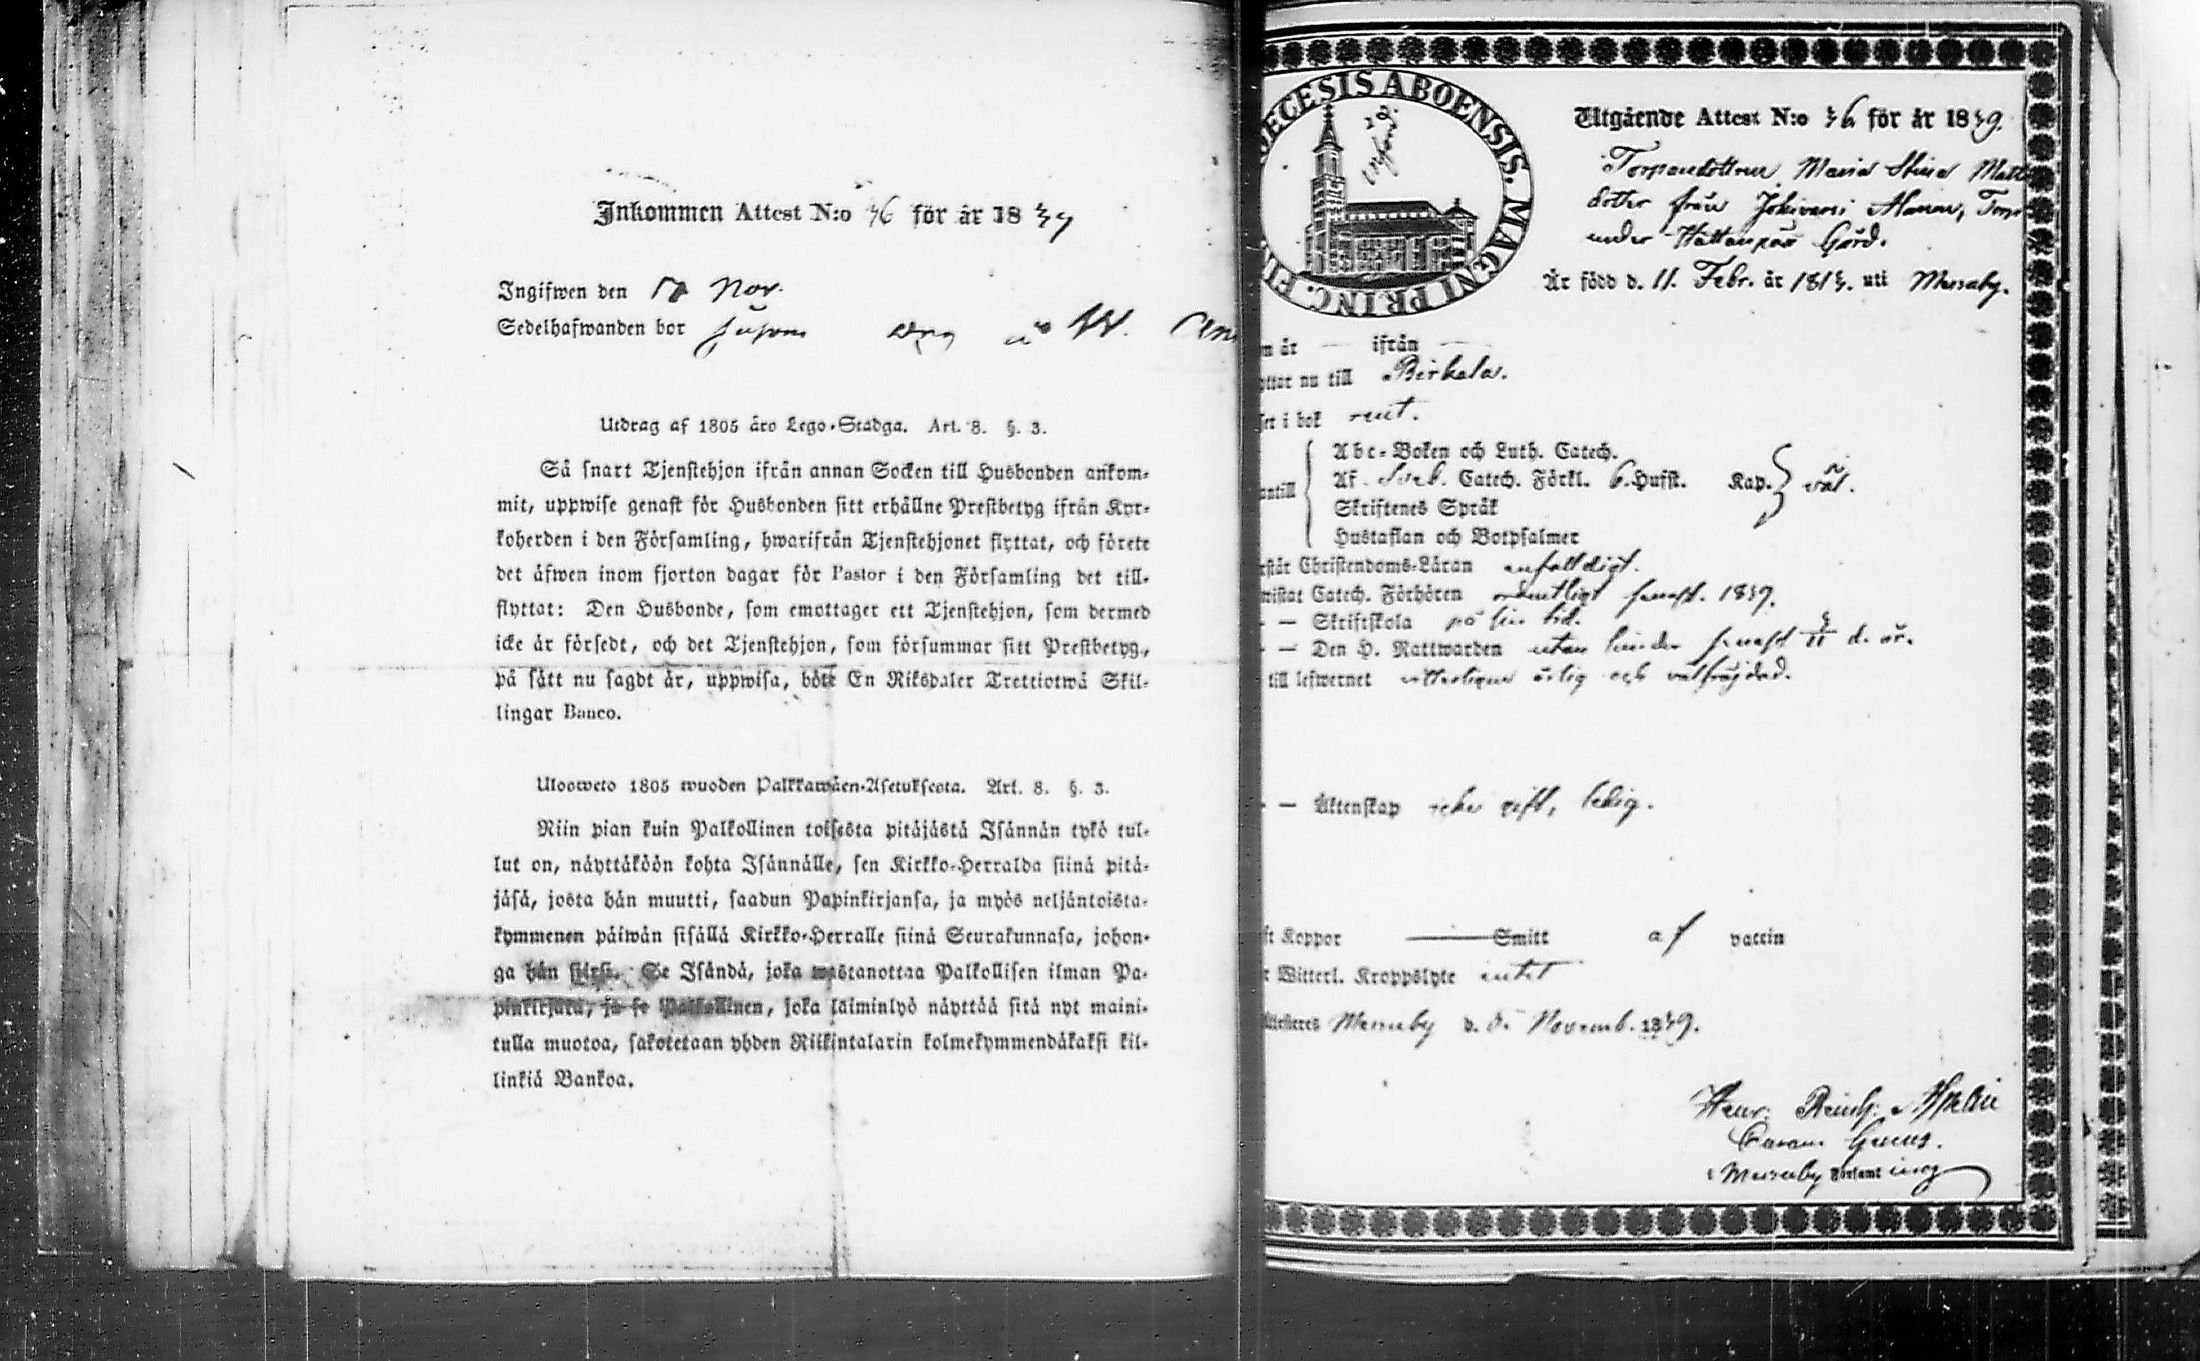 Inkommen Attest N:o 36 för år 1839
Ingifwen den 18 Nov.
Sedelhafwanden bor
Utdrag af 1805 års Lego-Stadga. Art. 8. §. 3.
Så snart Tjenstehjon ifrån annan Socken till Husbonden ankom-
mit, uppwise genast för Husbonden sitt erhållne Prestbetyg ifrån Kyr-
koherden i den Församling, hwarifrån Tjenstehjonet flyttat, och förete
det äfwen inom fjorton dagar för Pastor i den Församling det till-
flyttat: Den Husbonde, som emottager ett Tjenstehjon, som dermed
icke är försedt, och det Tjenstehjon, som försummar sitt Prestbetyg,
på sätt nu sagdt är, uppwisa, böte En Riksdaler Trettiotwå Skil-
lingar Banco.
Ulosweto 1805 wuoden Palkkawäen-Asetuksesta. Art. 8. §. 3.
Niin pian kuin Palkollinen toisesta pitäjästä Isännän tykö tul-
lut on, näyttäköön kohta Isännälle, sen Kirkko-Herralda siinä pitä-
jäsä, josta hän muutti, saadun Papinkirjansa, ja myös neljäntoista-
kymmenen päiwän sisällä Kirkko-Herralle siinä Seurakunnasa, johon-
ga hän siirsi. Se Isändä, joka wastanottaa Palkollisen ilman Pa-
pinkirjata, ja se Palkollinen, joka laiminlyö näyttää sitä nyt maini-
tulla muotoa, sakotetaan yhden Riikintalarin kolmekymmendäkaksi kil-
linkiä Bankoa.
DIOECESIS ABOENSIS. MAGNI PRINC. FIN
Utgående Attest N:o 36 för år 1839.
Torparedottren Maria Stina Matts
dotter från Jokivarsi Alanen, Torp
under Hattanpää Gård.
Är född d. 11. Febr. år 1813. uti Messuby.
m år — ifrån —
yttar nu till Birkala.
ser i bok rent.
antill
Abc-Boken och Luth. Catech.
Af Sveb. Catech. Förkl. 6. Hufst. Kap. väl.
Skriftenes Språk
Hustaflan och Botpsalmer
rstår Christendoms-Läran enfalldigt.
wistat Catech. Förhören ordentligt senast. 1839.
— — Skriftskola på sin tid.
— — Den H. Nattwarden utan hinder senast d. år.
till lefwernet vitterligen ärlig och välfrejdad.
— — Äktenskap icke gift, ledig.
ft Koppor — Smitt af vaccin
r Witterl. Kroppslyte intet
Attesteres Messuby d. 8. Novemb. 1839.
Henr. Reinh.
i Messuby Församling